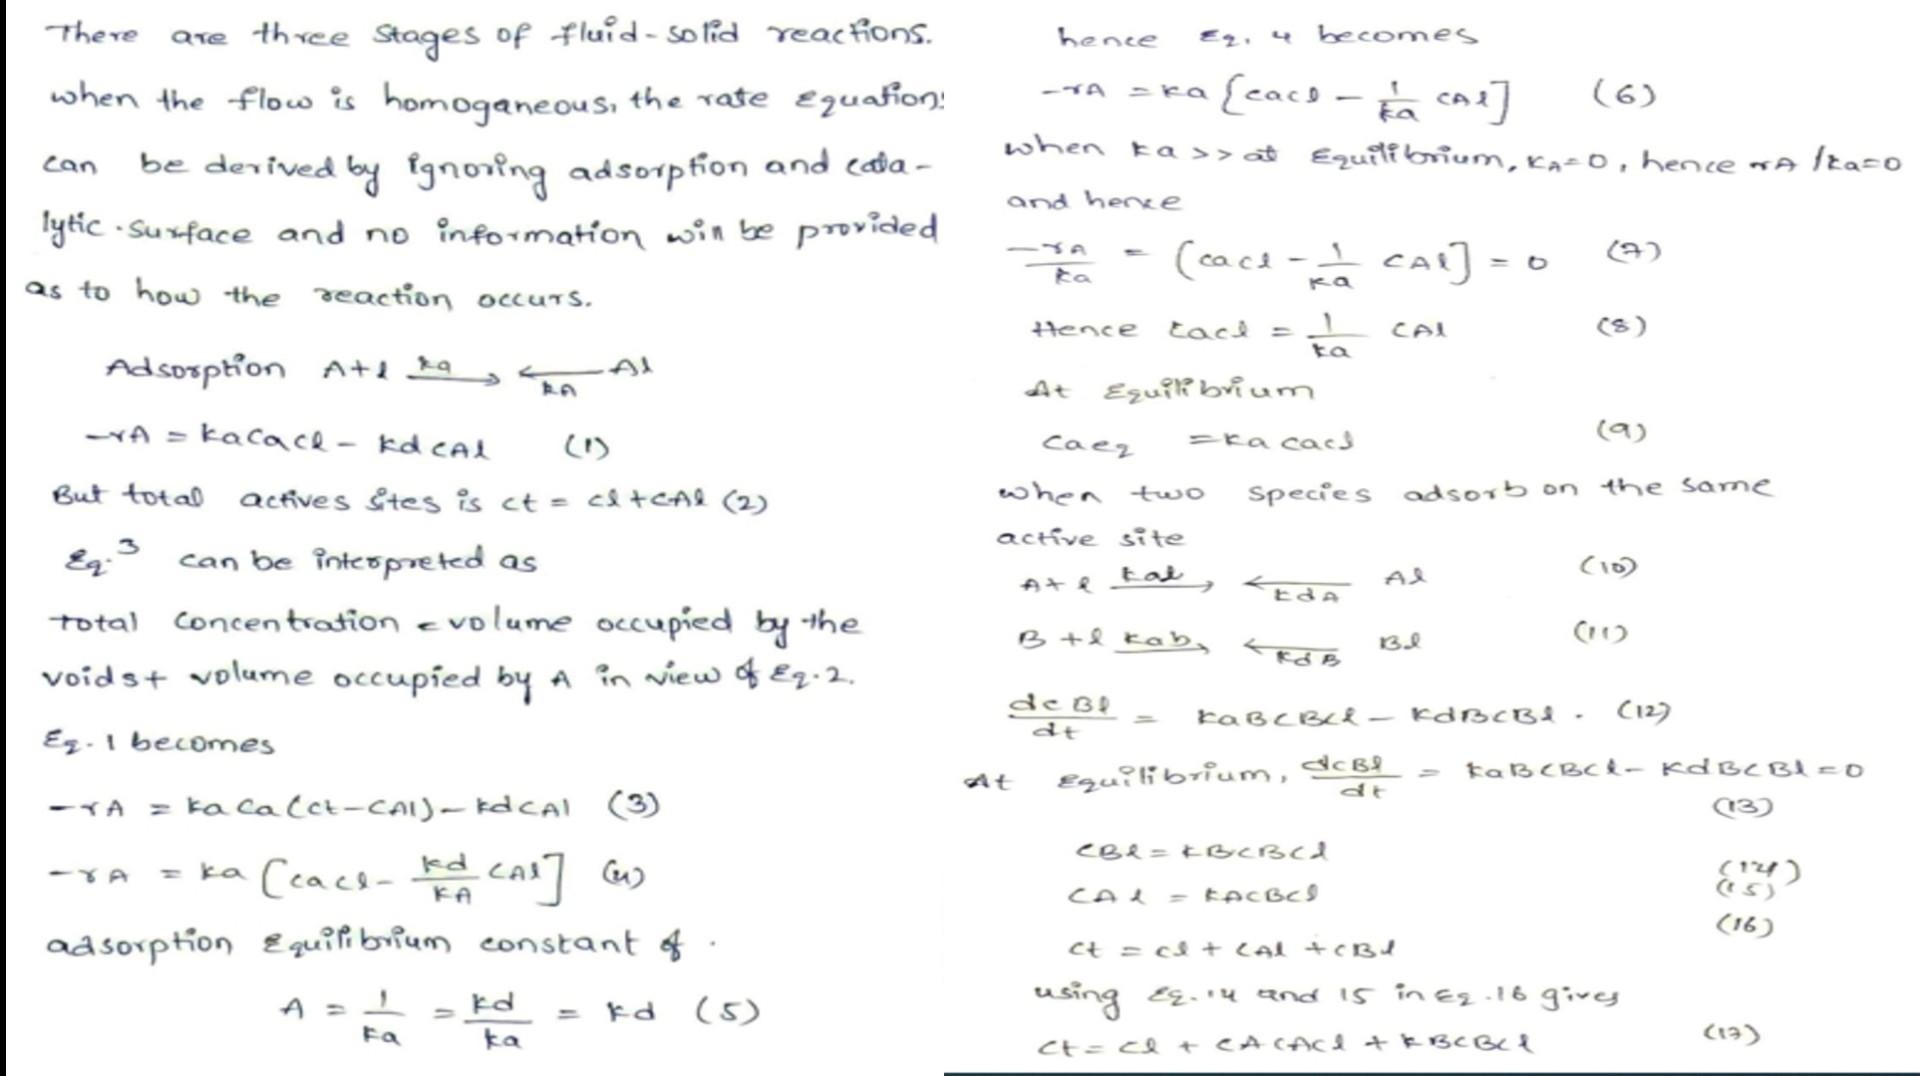 There are three stages of fluid-solid reactions.
when the flow is homoganeous, the rate equations
can be derived by ignoring adsorption and cata-
lytic surface and no information will be provided
as to how the reaction occurs.
Adsorption A+l ka → ← kA Al
-rA = kacacl - kdcAl (1)
But total actives sites is ct = cl+cAl (2)
Eq. 3 can be interpreted as
total concentration = volume occupied by the
voids+ volume occupied by A in view of Eq.2.
Eq. 1 becomes
-rA = kaca(ct-cAl)-kdcAl (3)
-rA = ka [cacl - kd/kA cAl] (4)
adsorption equilibrium constant of .
A = 1/ka = kd/ka = kd (5)
hence Eq. 4 becomes
-rA = ka [cacl - 1/ka cAl] (6)
when ka >> at Equilibrium, kA=0, hence rA/ka=0
and hence
-rA/ka = (cacl - 1/ka cAl] = 0 (7)
Hence cacl = 1/ka cAl (8)
At Equilibrium
caeq = ka cacl (9)
when two species adsorb on the same
active site
A+l kal → ← kdA Al (10)
B+l kab → ← kdB Bl (11)
dcBl/dt = kaBcBcl - kdBcBl . (12)
At equilibrium, dcBl/dt = kaBcBcl - kdBcBl = 0
(13)
cBl = kBcBcl (14)
cAl = kAcBcl (15)
(16)
ct = cl + cAl + cBl
using Eq. 14 and 15 in Eq. 16 gives
ct = cl + cAcAcl + kBcBcl (17)